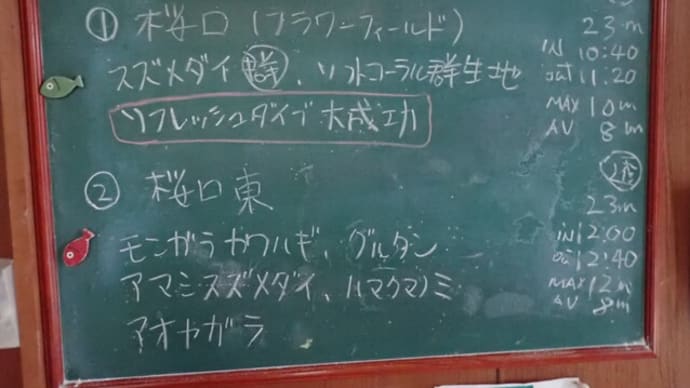 ① 桜口 (フラワーフィールド)
スズメダイ 群、ソフトコーラル群生地
リフレッシュダイブ 大成功
23m
IN 10:40
out 11:20
MAX 10m
AV 8m
② 桜口東
モンガラカワハギ、グルクン
アマミスズメダイ、ハマクマノミ
アオヤガラ
23m
IN 12:00
out 12:40
MAX 12m
AV 8m